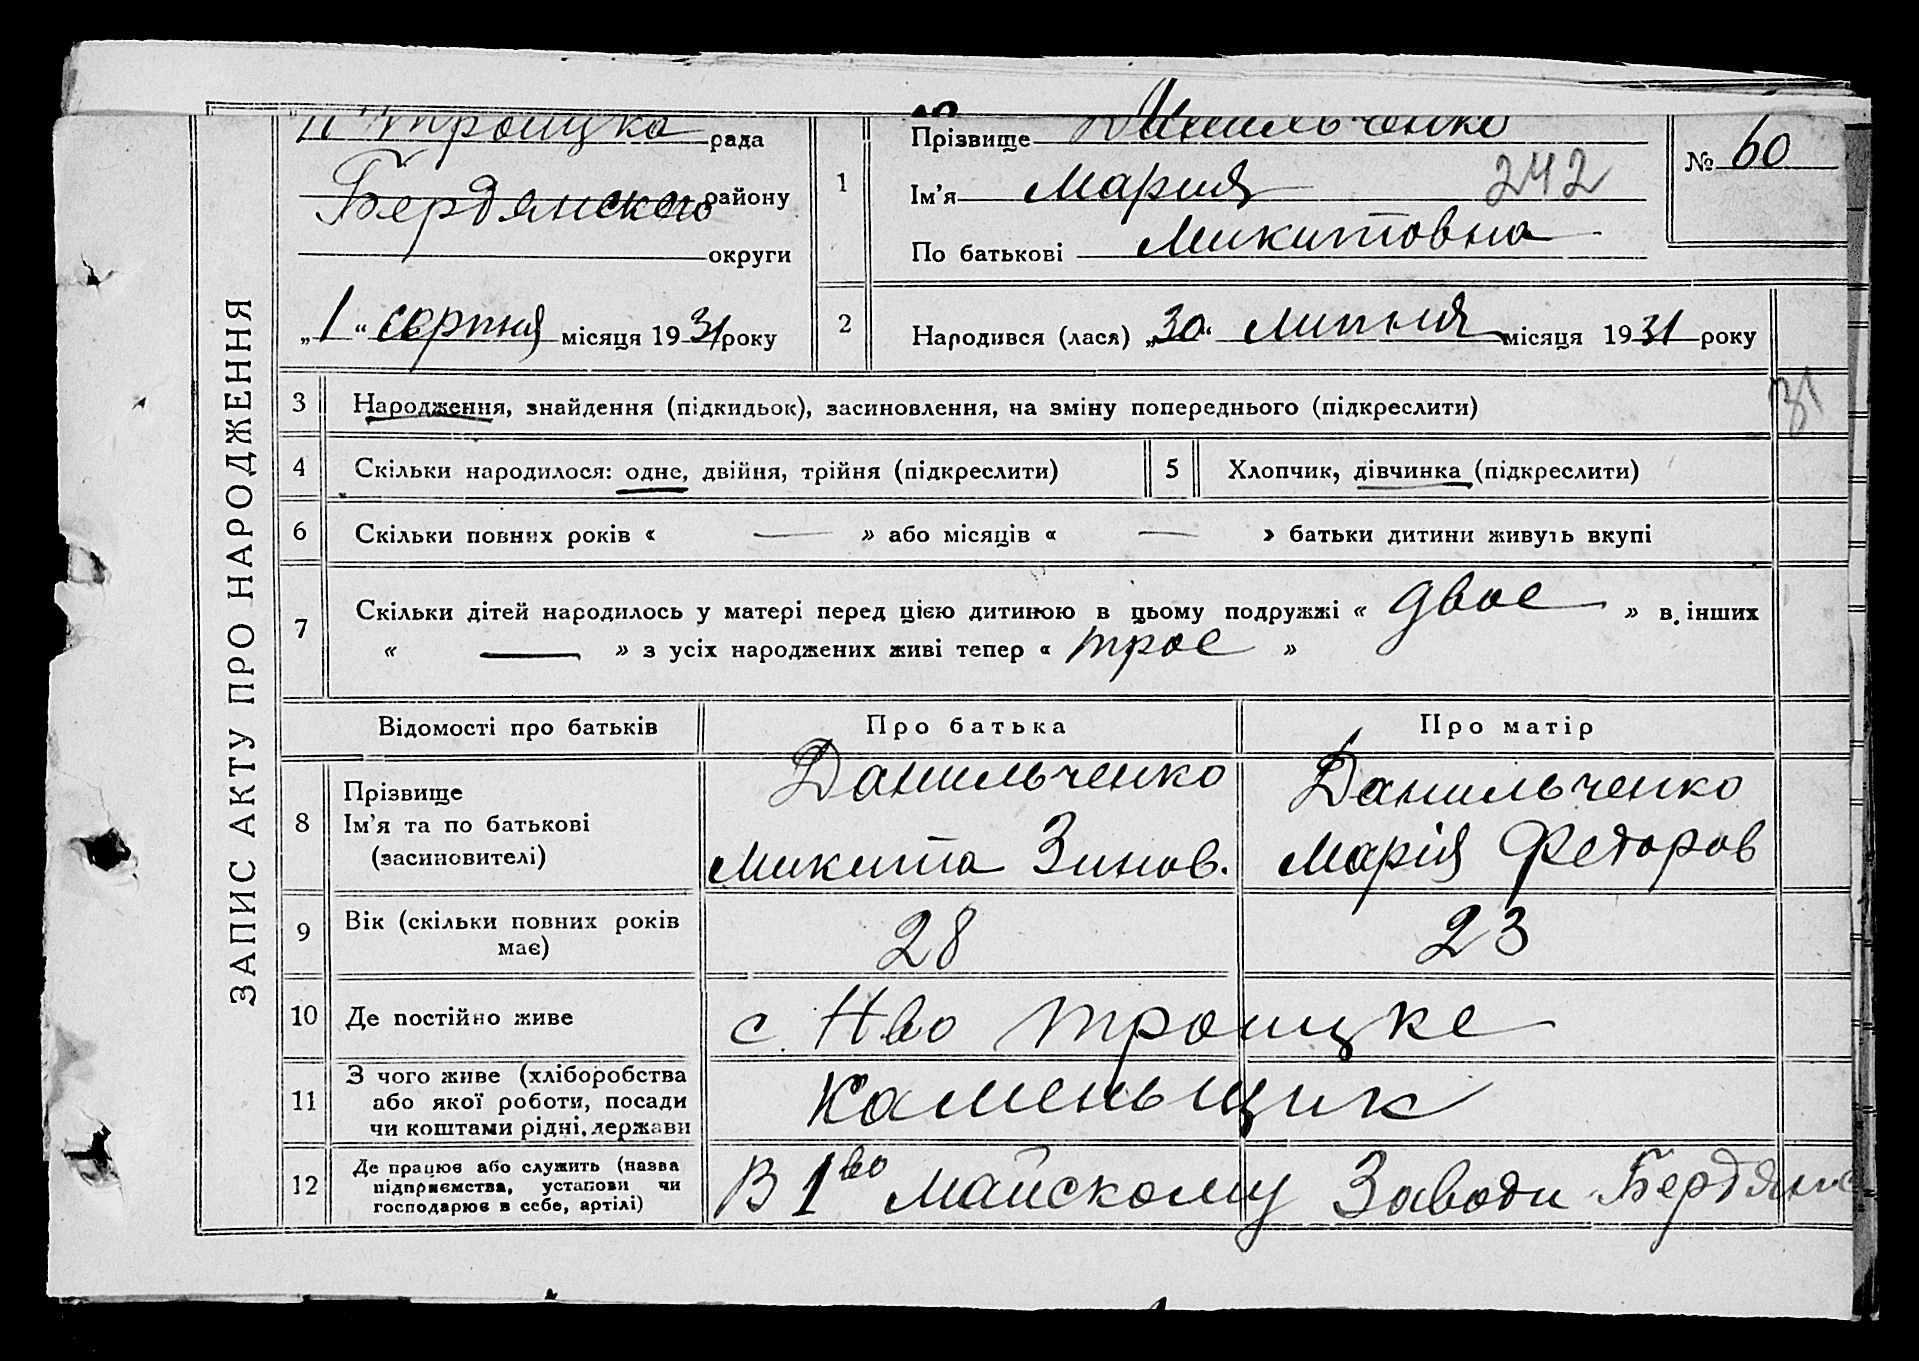 ЗАПИС АКТУ ПРО НАРОДЖЕННЯ
троицка рада
Бердянского району
округи
„1“ серпня місяця 1931 року
1
Прізвище Данильченко
Ім'я Мария 242
По батькові Микитовна
№ 60
2
Народився (лася) „30“ липня місяця 1931 року
31
3 Народження, знайдення (підкидьок), засиновлення, на зміну попереднього (підкреслити)
4 Скільки народилося: одне, двійня, трійня (підкреслити)
5 Хлопчик, дівчинка (підкреслити)
6 Скільки повних років « — » або місяців « — » батьки дитини живуть вкупі
7 Скільки дітей народилось у матері перед цією дитиною в цьому подружжі « двое » в. інших
« — » з усіх народжених живі тепер « трое »
Відомості про батьків Про батька Про матір
8 Прізвище
Ім'я та по батькові
(засиновителі)
Данильченко
Микита Зинов.
Данильченко
Марія Федоров
9 Вік (скільки повних років
має)
28 23
10 Де постійно живе с. Нво троицке
11 З чого живе (хліборобства
або якої роботи, посади
чи коштами рідні, держави
Каменьщик
12 Де працює або служить (назва
підприємства, установи чи
господарює в себе, артілі)
В 1во майскому Заводи Бердянс